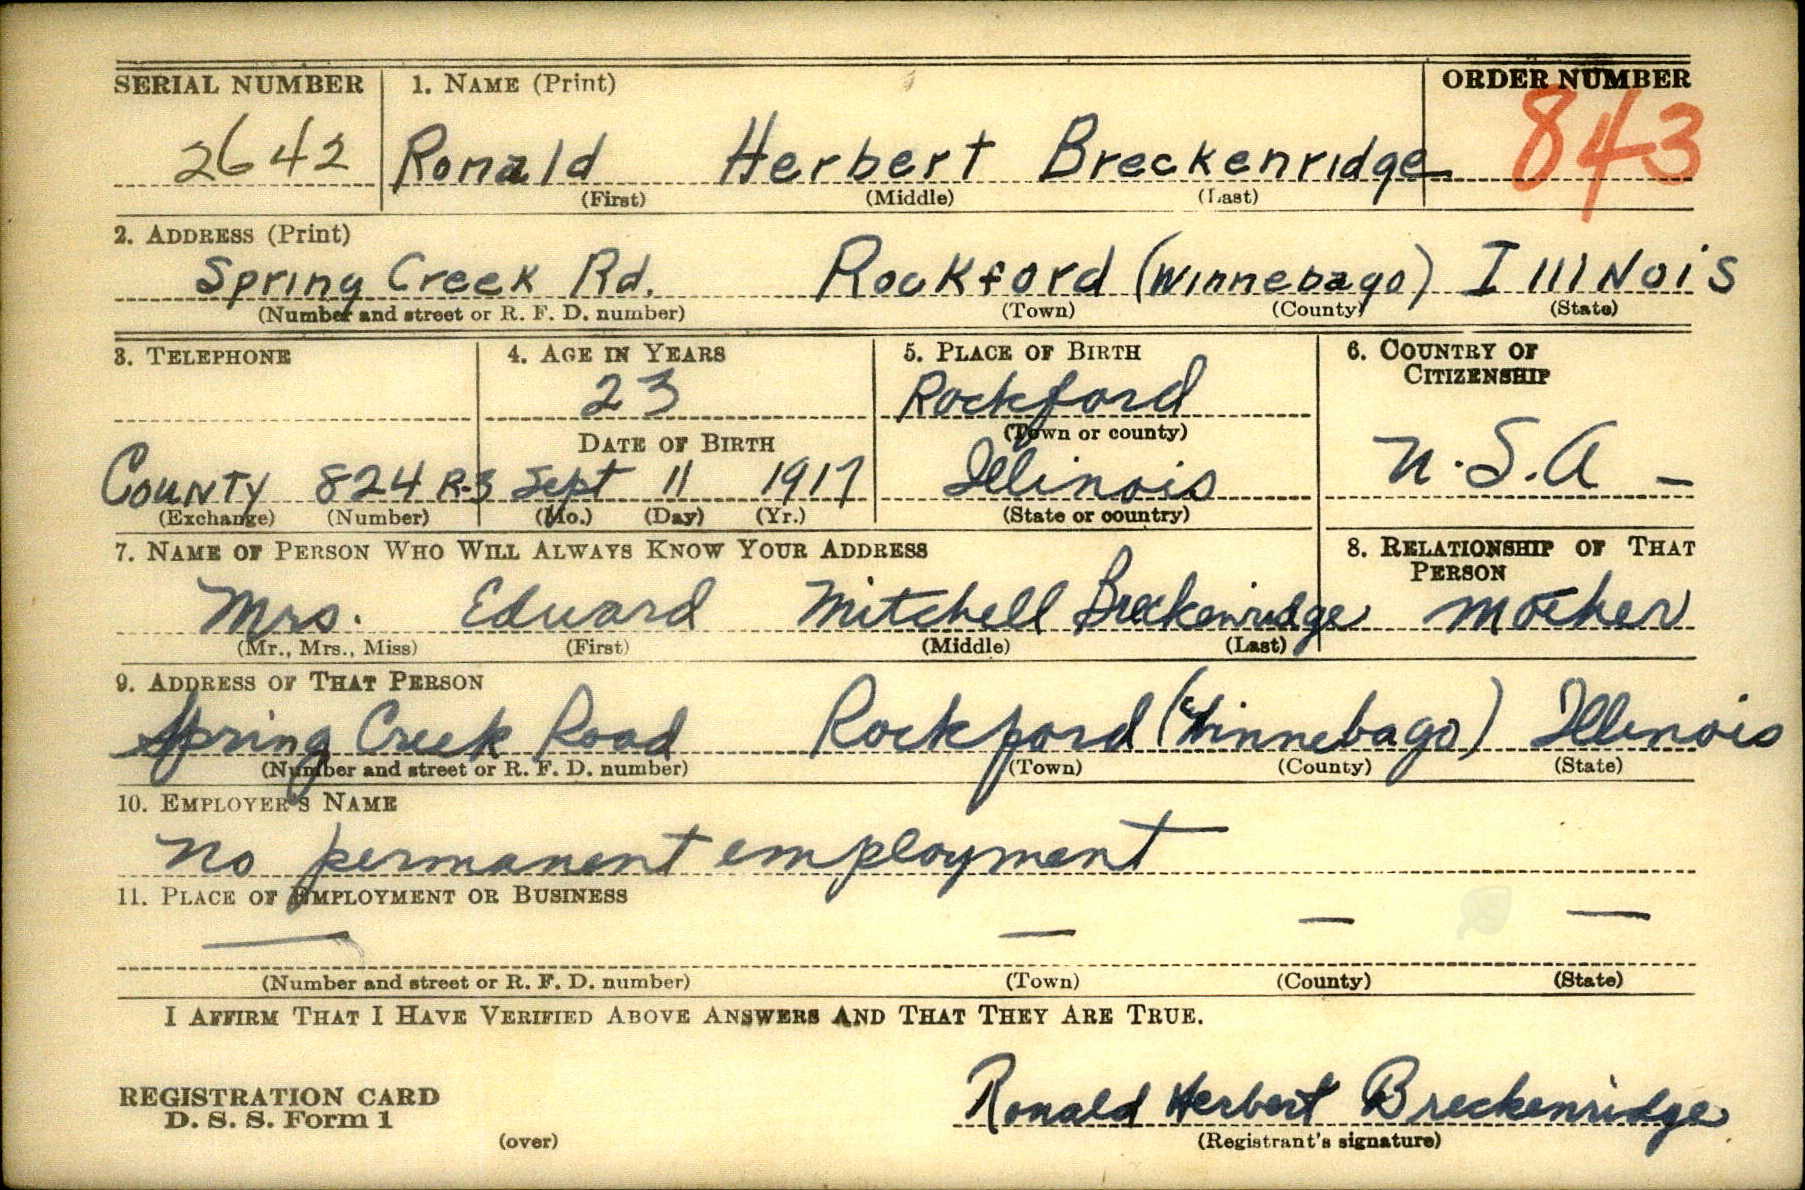 SERIAL NUMBER 1. NAME (Print) ORDER NUMBER
2642 Ronald Herbert Breckenridge 843
(First) (Middle) (Last)
2. ADDRESS (Print)
Spring Creek Rd. Rockford (Winnebago) Illinois
(Number and street or R. F. D. number) (Town) (County) (State)
3. TELEPHONE 4. AGE IN YEARS 5. PLACE OF BIRTH 6. COUNTRY OF CITIZENSHIP
23 Rockford
(Town or county)
DATE OF BIRTH
County 824 R-3 Sept 11 1917 Illinois U.S.A –
(Exchange) (Number) (Mo.) (Day) (Yr.) (State or country)
7. NAME OF PERSON WHO WILL ALWAYS KNOW YOUR ADDRESS 8. RELATIONSHIP OF THAT PERSON
Mrs. Edward Mitchell Breckenridge Mother
(Mr., Mrs., Miss) (First) (Middle) (Last)
9. ADDRESS OF THAT PERSON
Spring Creek Road Rockford (Winnebago) Illinois
(Number and street or R. F. D. number) (Town) (County) (State)
10. EMPLOYER'S NAME
No permanent employment
11. PLACE OF EMPLOYMENT OR BUSINESS
— — — —
(Number and street or R. F. D. number) (Town) (County) (State)
I AFFIRM THAT I HAVE VERIFIED ABOVE ANSWERS AND THAT THEY ARE TRUE.
REGISTRATION CARD
D. S. S. Form 1
Ronald Herbert Breckenridge
(over) (Registrant's signature)